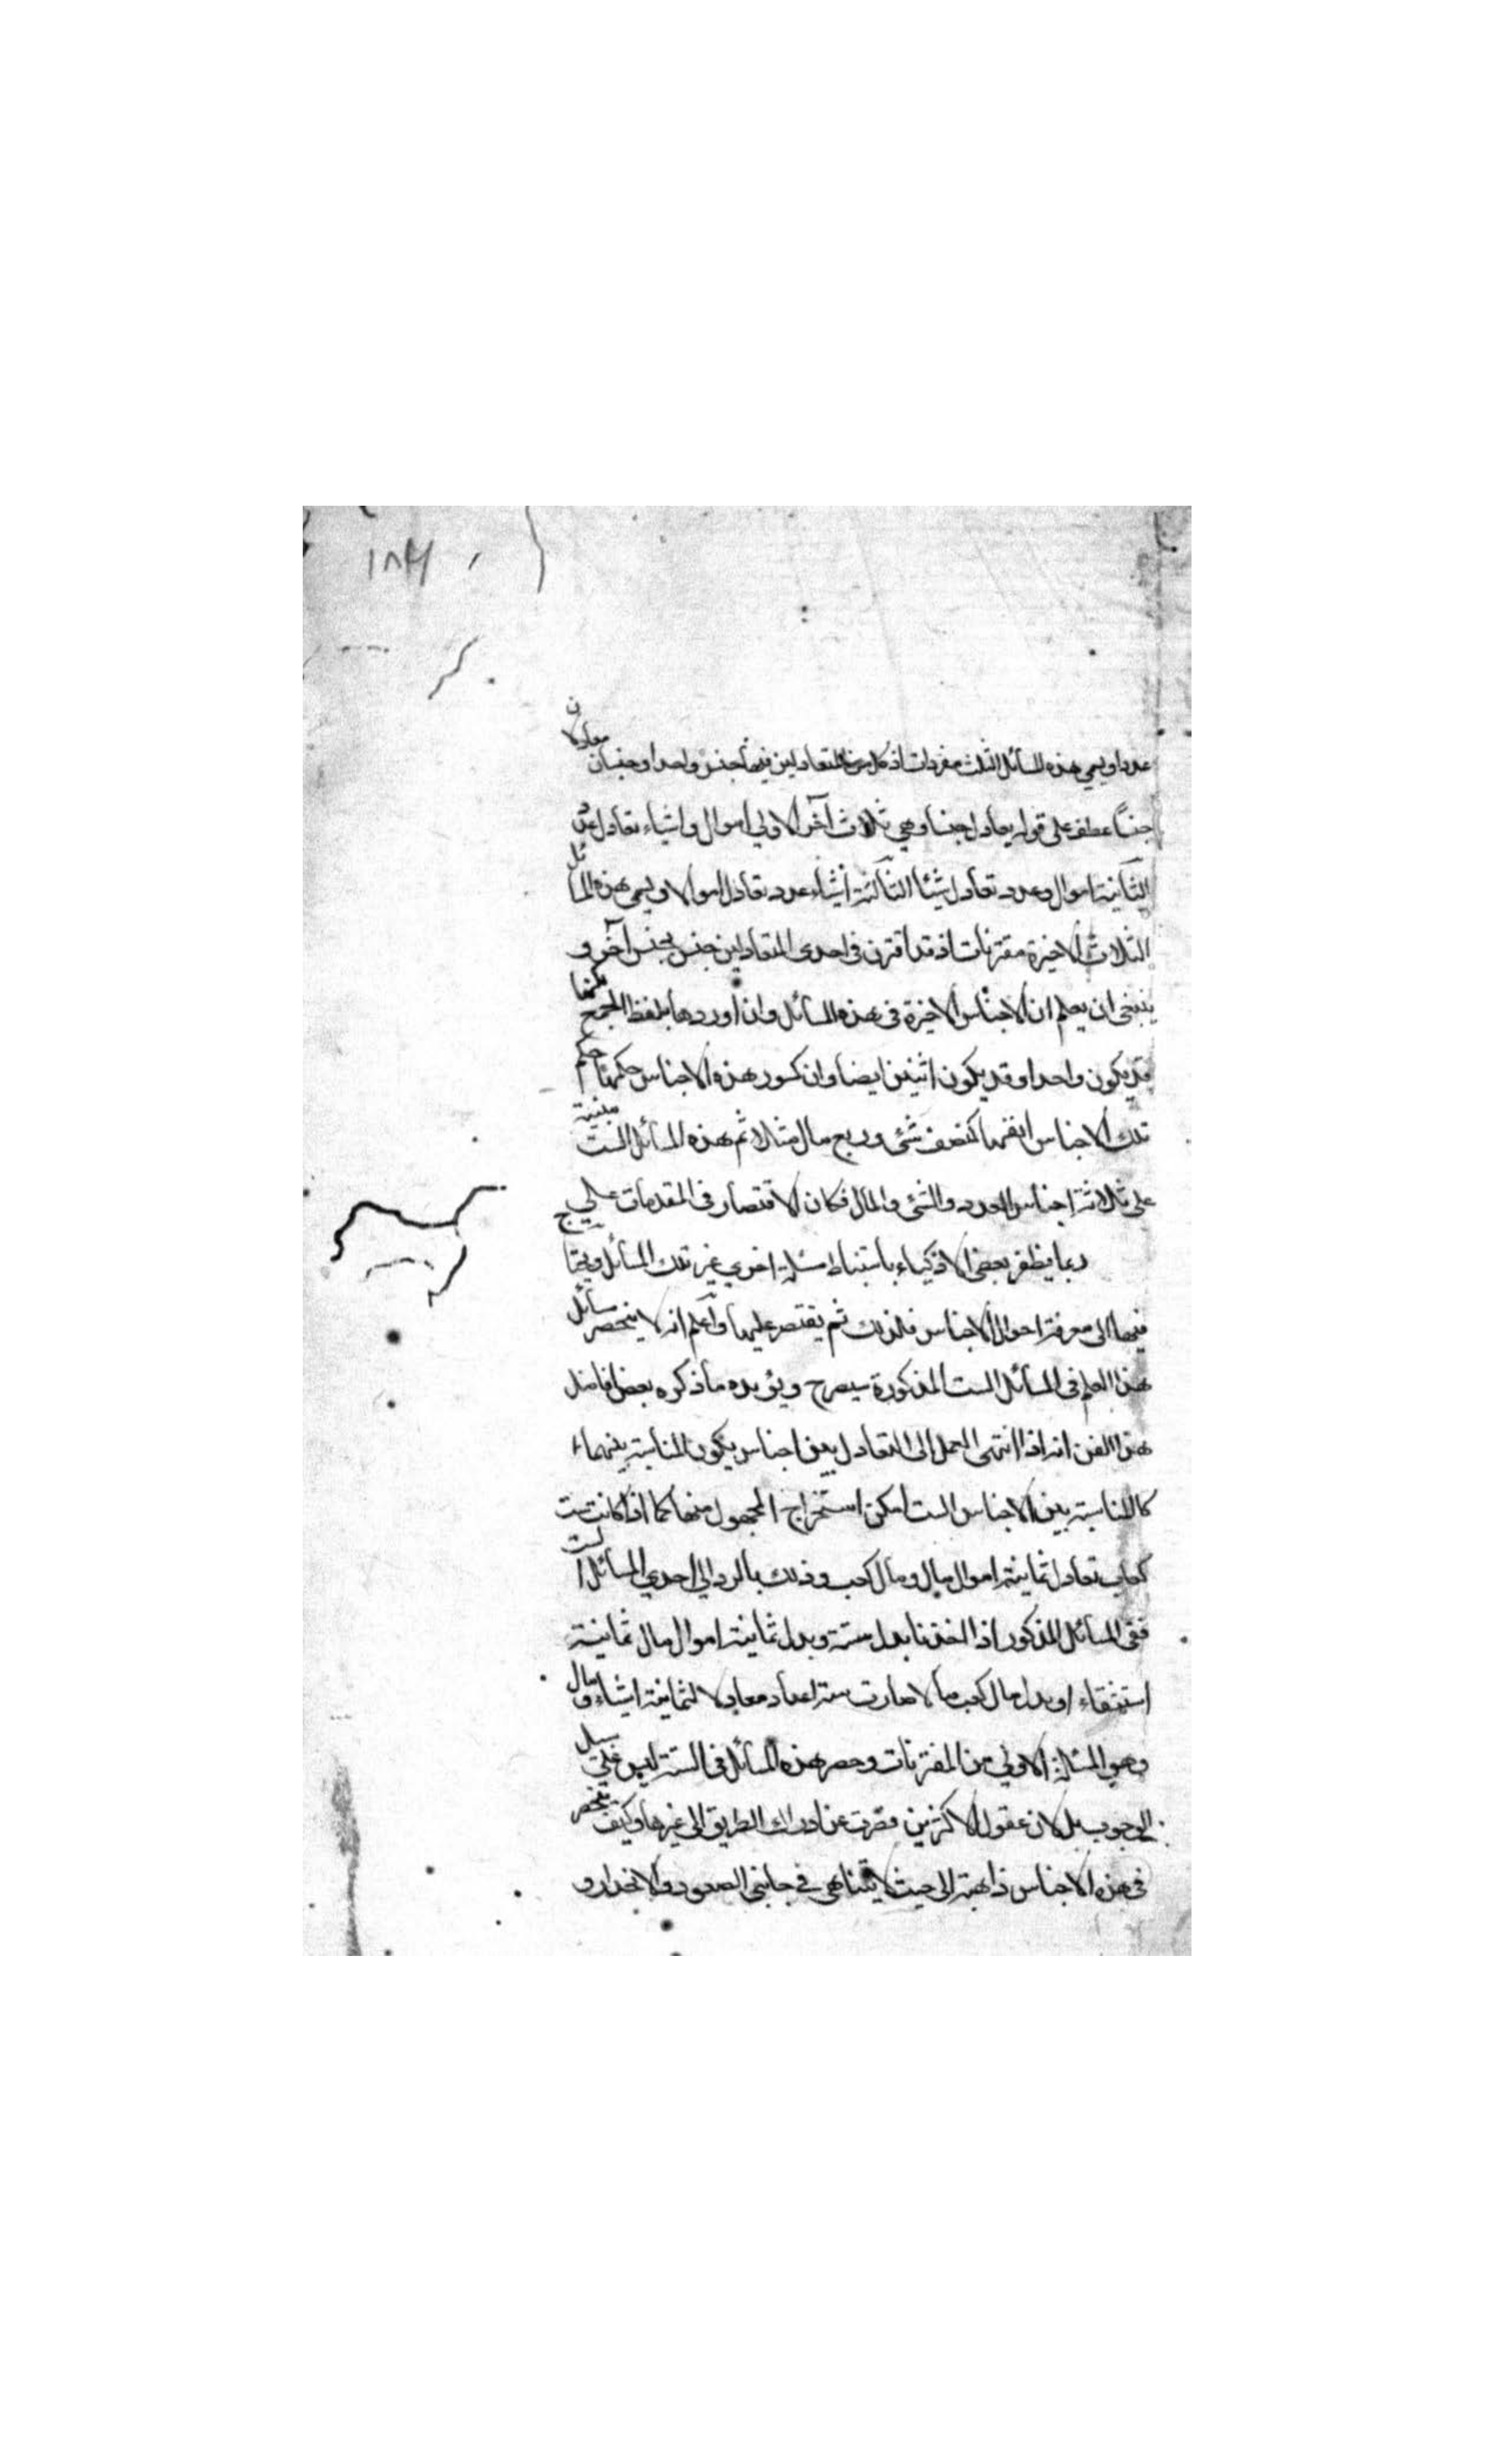 ١٨٣
عددا ويسمي هذه المسائل الثلث مفردات اذ كل من المتعادلين فيها جنس واحد او جنسان معادلان
جنساً عطف على قوله يعادل جنسا وهي ثلاث آخر الاولي اموال واشياء تعادل عدد
الثانية اموال وعدد تعادل شيئا الثالثة اشياء عدد تعادل اموالا ويسمى هذه المسائل
الثلاث الاخيرة مقترنات اذ قد اقترن في احدى المتعادلين جنس بجنس آخر و
ينبغى ان يعلم ان الاجناس الاخيرة فى هذه المسائل وان اوردها بلفظ الجمع لكنها
قد يكون واحدا وقد يكون اثنين ايضا وان كسور هذه الاجناس حكمها حكم
تلك الاجناس انفسها كنصف شئ وربع مال مثلا ثم هذه المسائل الست مبنية
على ثلاثة اجناس العدد والشئ والمال فكان الاقتصار فى المقدمات علي
ربما يظفر بعض الاذكياء باستنباط مسئلة اخري غير تلك المسائل ويحتاج
فيها الى معرفة احوال الاجناس فلذلك ثم يقتصر عليها وآعلم انه لا ينحصر مسائل
هذا العلم فى المسائل الست المذكورة سيصرح ويؤيده ما ذكره بعض افاضل
هذا الفن انه اذا انتهى العمل الى التعادل بين اجناس يكون المناسبة بينهما
كالمناسبة بين الاجناس الست امكن استخراج المجهول منها كما اذا كانت ست
كعاب تعادل ثمانية اموال مال ومال كعب وذلك بالرد الي احدي المسائل الست
ففى المسائل المذكور اذ اخذنا بدل ستة وبدل ثمانية اموال مال ثمانية
اشياء وبدل مال كعب مالا صارت ستة اعداد معادلا لثمانية اشياء ومال
وهي المسئلة الاولي من المقترنات وحصر هذه المسائل فى الستة ليس على سبيل
الوجوب بل لان عقول الاكثرين قصرت عن ادراك الطريق الى غيرها وكيف ينحصر
فى هذه الاجناس ذاهبة الى حيث لا يتناهي في جانبي الصعود والانحدار و